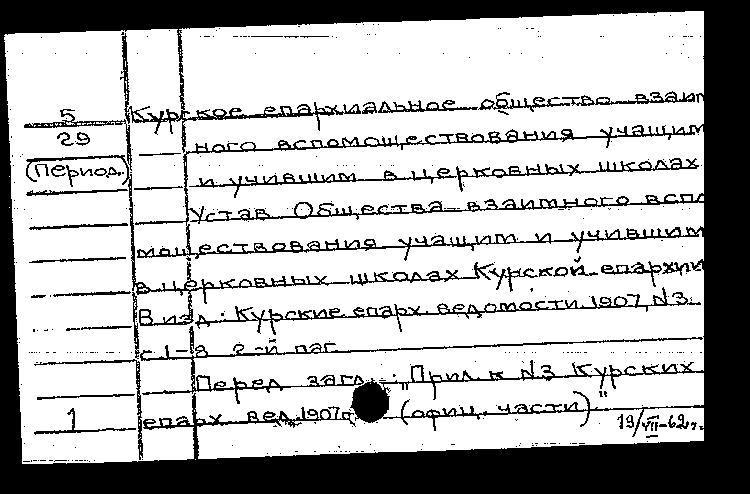 5
29
(Период.)
Курское епархиальное общество взаим
ного вспомоществования учащим
и учившим в церковных школах
Устав Общества взаимного вспо
моществования учащим и учившим
в церковных школах Курской епархии
В изд.: Курские епарх. ведомости. 1907, N3.
с. 1-8 2-й паг.
Перед загл.: "Прил. к N3 Курских
епарх. вед. 1907 г. (офиц. части)"
1
19/VII-62 г.